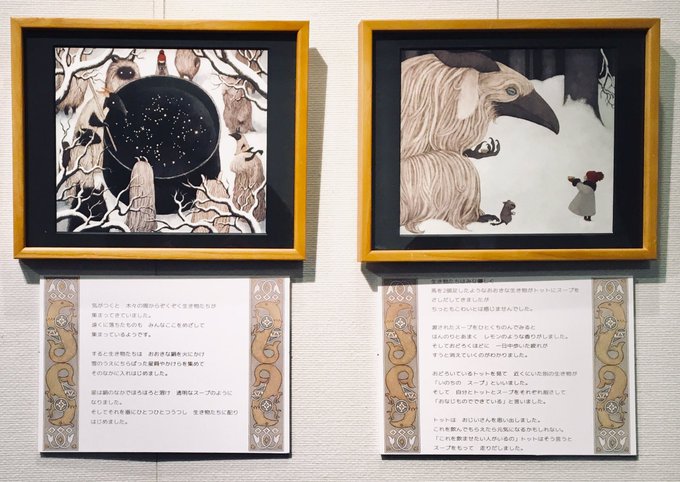 気がつくと　木々の間からぞくぞく生き物たちが
集まってきていました。
遠くに落ちたものも　みんなここをめざして
集まっているようです。
すると生き物たちは　おおきな鍋を火にかけ
雪のうえにちらばった星屑やかけらを集めて
そのなかに入れはじめました。
星は鍋のなかでほろほろと溶け　透明なスープのように
なりました。
そしてそれを器にひとつひとつうつし　生き物たちに配り
はじめました。
生き物たちはみな優しく
馬を2頭足したようなおおきな生き物がトットにスープを
さしだしてきましたが
ちっともこわいとは感じませんでした。
渡されたスープをひとくちのんでみると
ほんのりとあまく　レモンのような香りがしました。
そしておどろくほどに　一日中歩いた疲れが
すうと消えていくのがわかりました。
おどろいているトットを見て　近くにいた別の生き物が
「いのちの　スープ」といいました。
そして　自分とトットとスープをそれぞれ指さして
「おなじものでできている」と言いました。
トットは　おじいさんを思い出しました。
これを飲んでもらえたら元気になるかもしれない。
「これを飲ませたい人がいるの」トットはそう言うと
スープをもって　走りだしました。